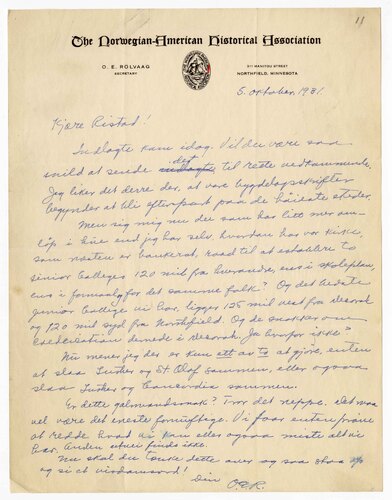 11
The Norwegian-American Historical Association
O. E. ROLVAAG
SECRETARY
311 MANITOU STREET
NORTHFIELD, MINNESOTA
5. oktober, 1931.
Kjære Ristad!
Indlagte kom idag. Vil du være saa
snild at sende det til rette vedkommende.
Jeg liker det derre der, at vore bygdelagsskrifter
begynder at bli efterspurt paa de høieste steder.
Men sig mig nu du som har litt mer om-
løp i hue end jeg har selv, hvordan har vor kirke,
som næsten er bankerot, raad til at establere to
senior Colleges 120 mil fra hverandre, ens i skoleplan,
ens i formaal for det samme folk? Og det bedste
junior College vi har, ligger 125 mil vest fra Decorah
og 120 mil syd fra Northfield. Og de snakker om
Coeducation dernede i Decorah. Ja hvorfor ikke?
Nu mener jeg der er kun ett av to at gjøre, enten
at slaa Luther og St. Olaf sammen, eller ogsaa
slaa Luther og Concordia sammen.
Er dette galmandssnak? Tror det neppe. Det maa
vel være det eneste fornuftige. Vi faar enten prøve
at redde hvad vi kan eller ogsaa miste alt vi
har. Anden utvei findes ikke.
Nu skal du tænke dette over og saa
og si et visdomsord!
Din O.E.R.